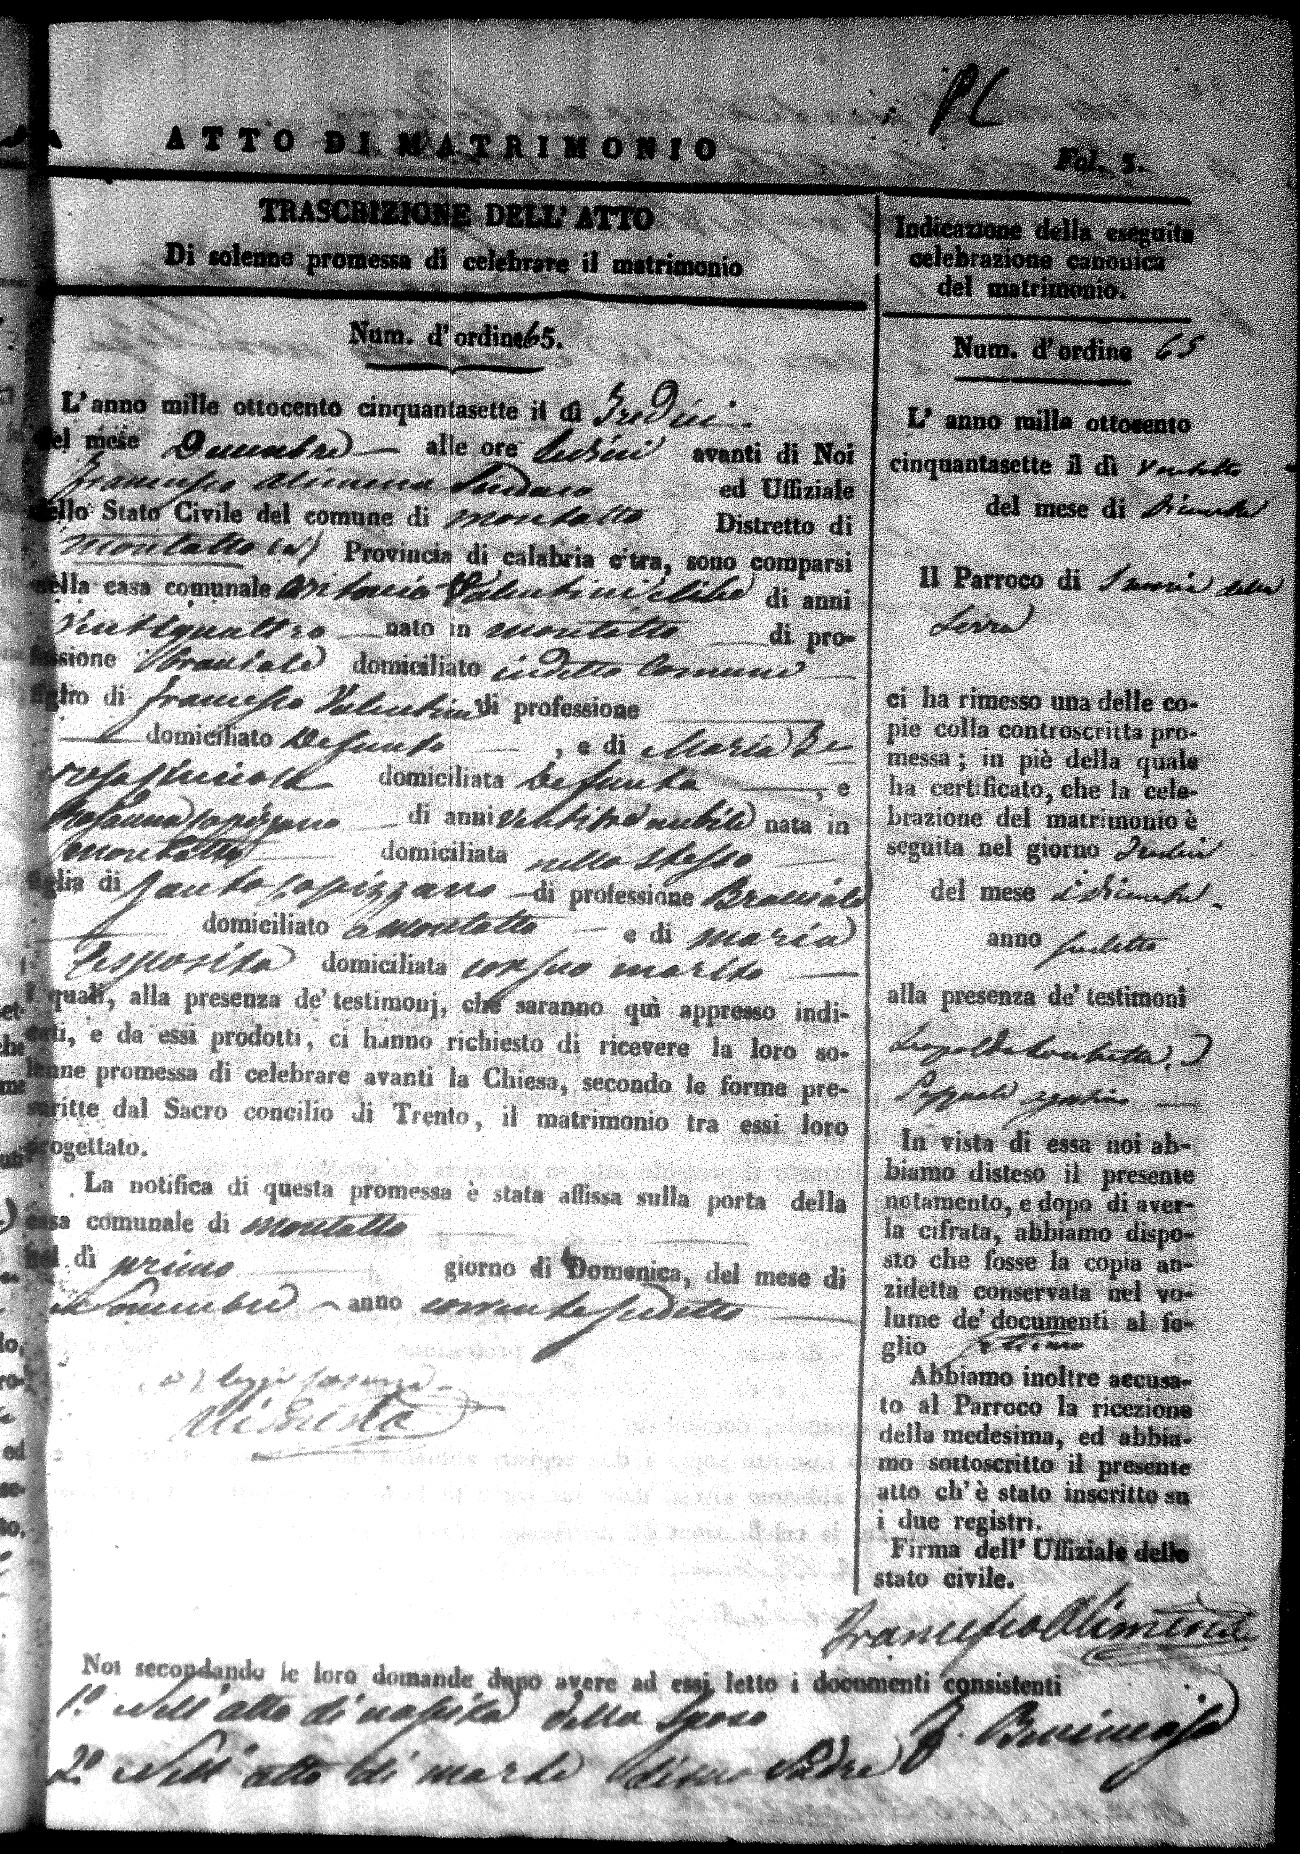 ATTO DI MATRIMONIO
Fol. 5.
TRASCRIZIONE DELL' ATTO
Di solenne promessa di celebrare il matrimonio
Num. d'ordine 65.
L'anno mille ottocento cinquantasette il dì Tredici
del mese Decembre alle ore sedici avanti di Noi
Francesco Alimena Sindaco ed Uffiziale
dello Stato Civile del comune di Montalto Distretto di
Montalto (a) Provincia di calabria citra, sono comparsi
nella casa comunale Antonio Valentini celibe di anni
Ventiquattro nato in Montalto di pro-
fessione Bracciale domiciliato in detto Comune
figlio di Francesco Valentini di professione
domiciliato Defunto , e di Maria
domiciliata Defunta , e
Rosanna Sapizzano di anni ventitre nubile nata in
Montalto domiciliata nello stesso
figlia di Santo Sapizzano di professione Bracciale
domiciliato Montalto e di Maria
Esposita domiciliata con suo marito
I quali, alla presenza de' testimonj, che saranno quì appresso indi-
cati, e da essi prodotti, ci hanno richiesto di ricevere la loro so-
lenne promessa di celebrare avanti la Chiesa, secondo le forme pre-
scritte dal Sacro concilio di Trento, il matrimonio tra essi loro
progettato.
La notifica di questa promessa è stata affissa sulla porta della
casa comunale di Montalto
nel dì primo giorno di Domenica, del mese di
Novembre anno corrente sudetto
Indicazione della eseguita
celebrazione canonica
del matrimonio.
Num. d'ordine 65
L' anno mille ottocento
cinquantasette il dì
del mese di Dicembre
Il Parroco di della
Serra
ci ha rimesso una delle co-
pie colla controscritta pro-
messa; in piè della quale
ha certificato, che la cele-
brazione del matrimonio è
seguita nel giorno
del mese di Dicembre
anno sudetto
alla presenza de' testimoni
In vista di essa noi ab-
biamo disteso il presente
notamento, e dopo di aver-
la cifrata, abbiamo dispo-
sto che fosse la copia an-
zidetta conservata nel vo-
lume de' documenti al fo-
glio settimo
Abbiamo inoltre accusa-
to al Parroco la ricezione
della medesima, ed abbia-
mo sottoscritto il presente
atto ch'è stato inscritto su
i due registri.
Firma dell' Uffiziale dello
stato civile.
Francesco Alimena
Noi secondando le loro domande dopo avere ad essi letto i documenti consistenti
1.º Nell' atto di nascita dello Sposo
2.º Nell' atto di morte di suo Padre